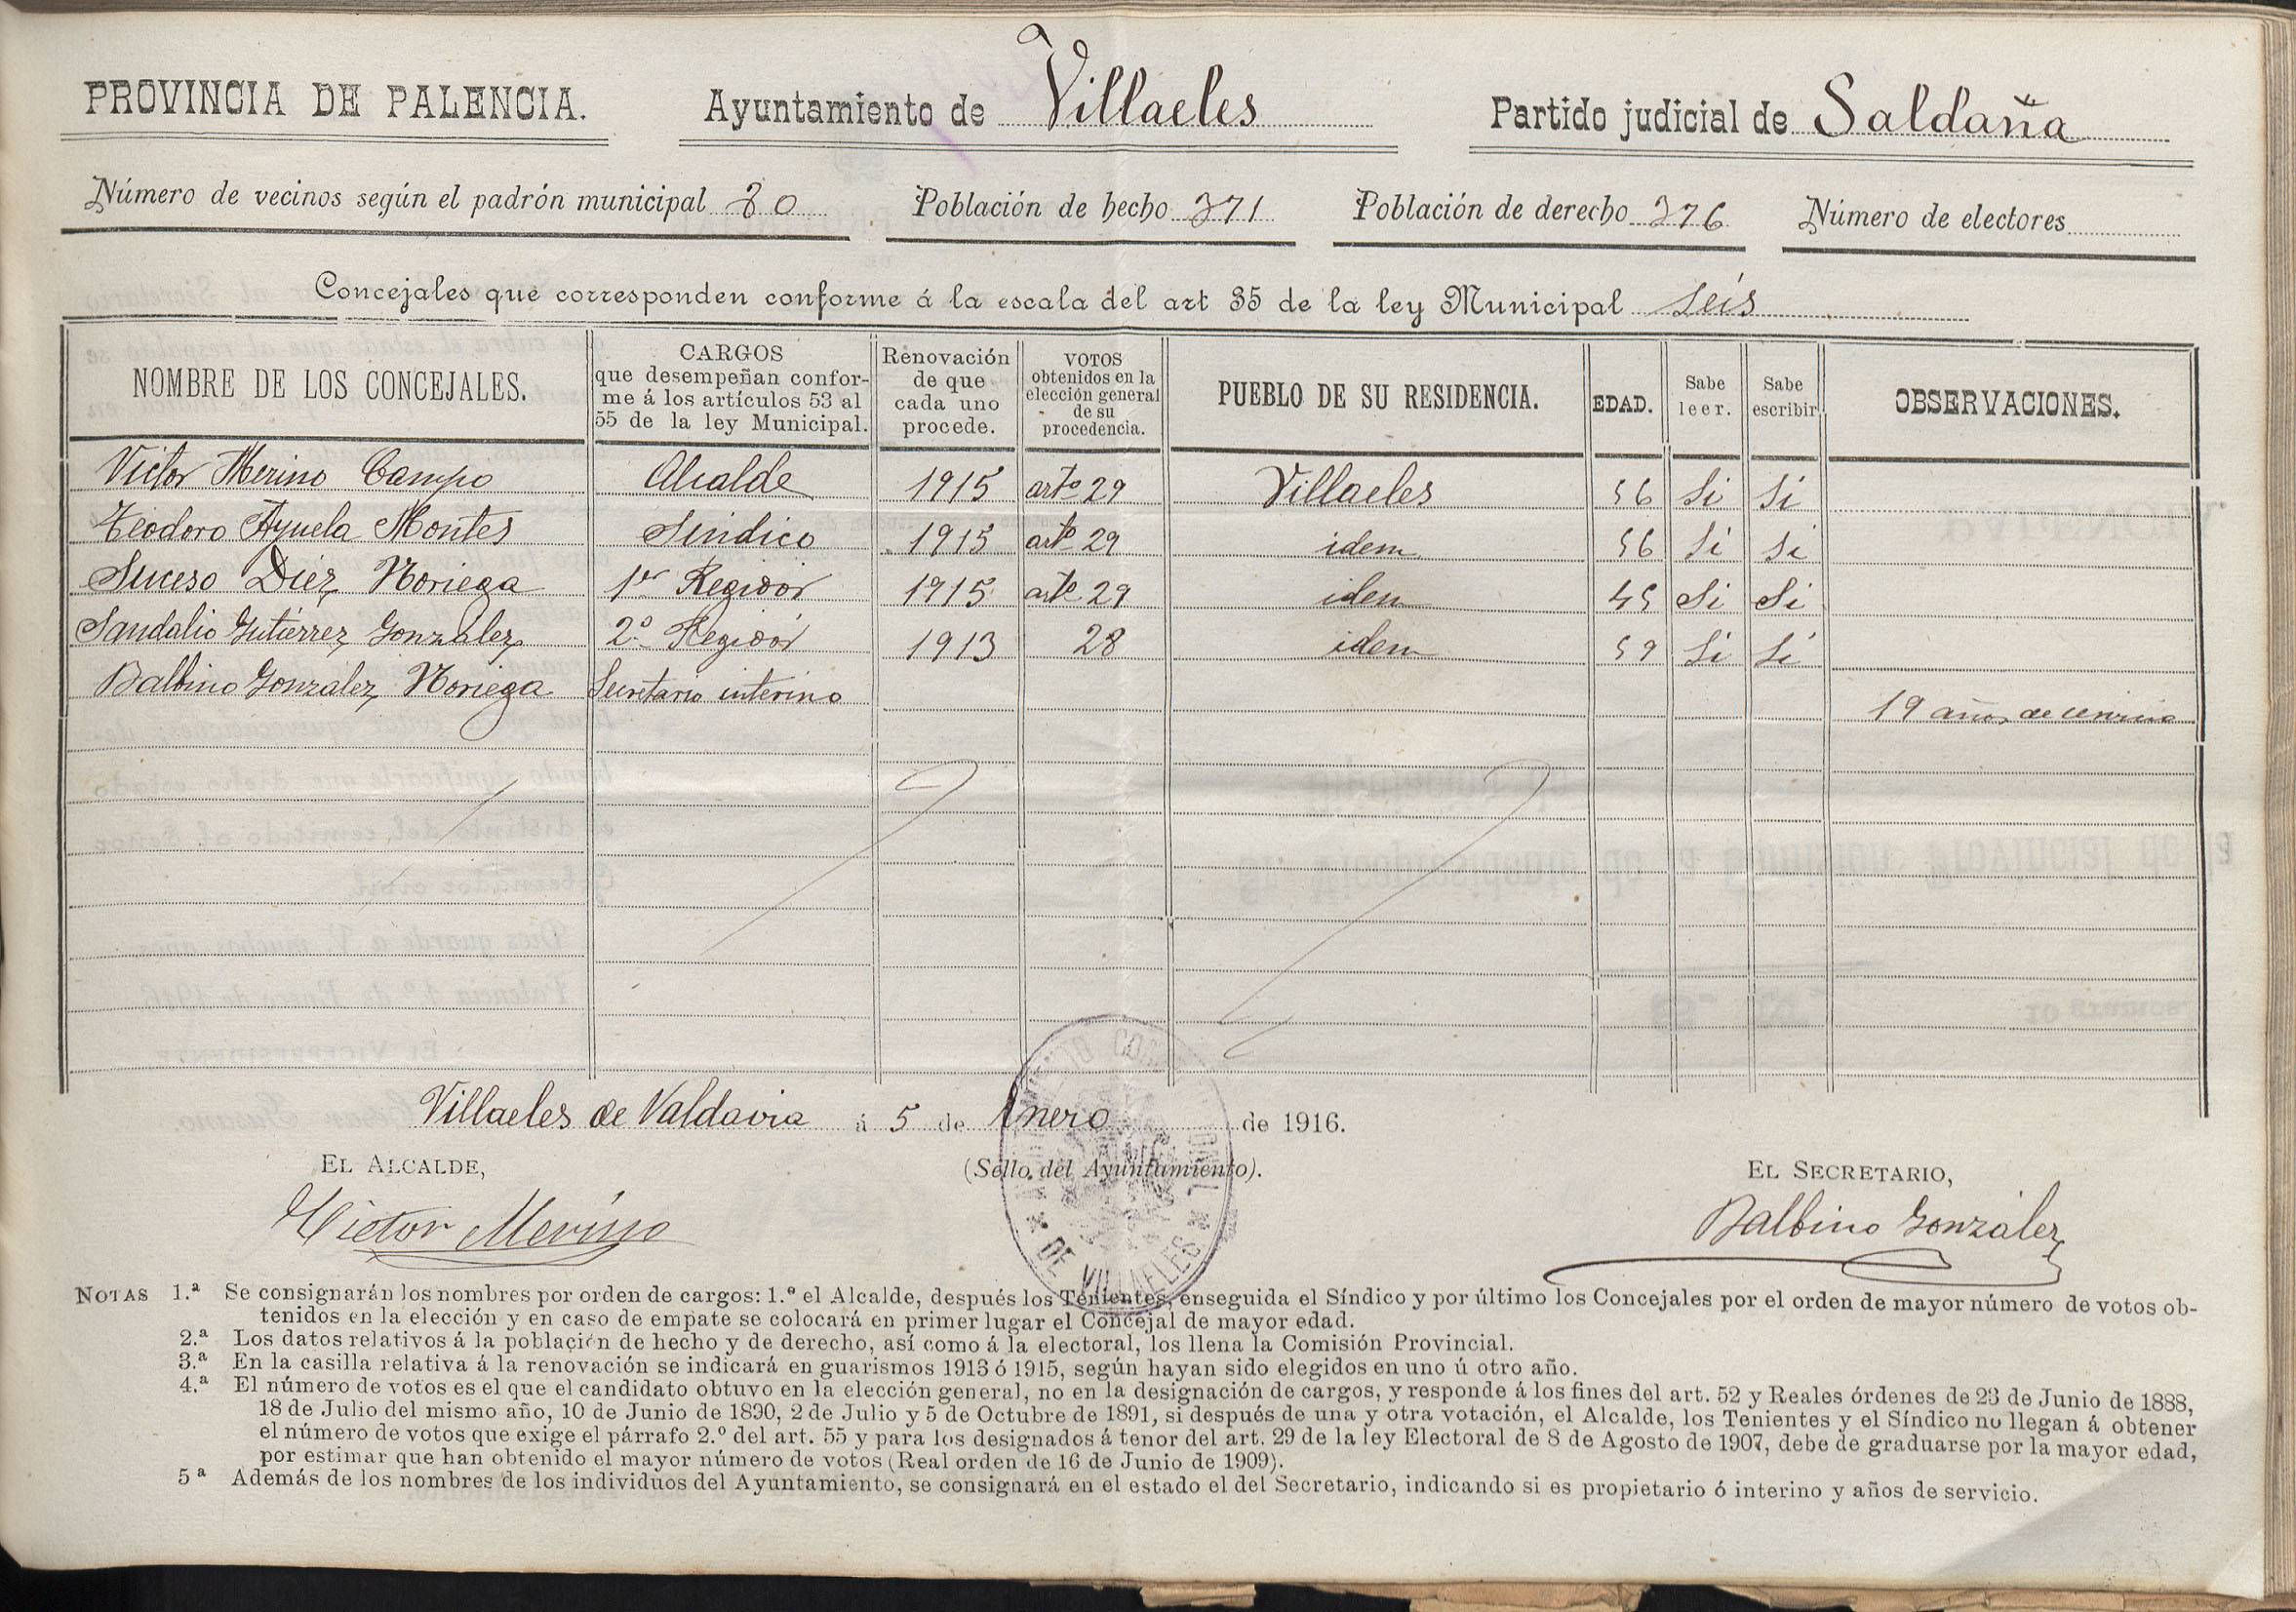 PROVINCIA DE PALENCIA. Ayuntamiento de Villaeles Partido judicial de Saldaña
Número de vecinos según el padrón municipal 80 Población de hecho 371 Población de derecho 376 Número de electores
Concejales que corresponden conforme á la escala del art 35 de la ley Municipal seis
NOMBRE DE LOS CONCEJALES.
CARGOS
que desempeñan confor-
me á los artículos 53 al
55 de la ley Municipal.
Renovación
de que
cada uno
procede.
VOTOS
obtenidos en la
elección general
de su
procedencia.
PUEBLO DE SU RESIDENCIA.
EDAD.
Sabe
leer.
Sabe
escribir
OBSERVACIONES.
Victor Merino Campo Alcalde 1915 artº 29 Villaeles 56 Si Si
Teodoro Ayuela Montes Sindico 1915 artº 29 idem 56 Si Si
Suceso Diez Noriega 1er Regidor 1915 artº 29 idem 45 Si Si
Sandalio Gutiérrez González 2º Regidor 1913 28 idem 59 Si Si
Balbino Gonzalez Noriega Secretario interino 19 años de
Villaeles de Valdavia á 5 de Enero de 1916.
EL ALCALDE, (Sello del Ayuntamiento). EL SECRETARIO,
Victor Merino Balbino Gonzalez
* DE VILLAELES *
NOTAS 1.ª Se consignarán los nombres por orden de cargos: 1.º el Alcalde, después los Tenientes, enseguida el Síndico y por último los Concejales por el orden de mayor número de votos ob-
tenidos en la elección y en caso de empate se colocará en primer lugar el Concejal de mayor edad.
2.ª Los datos relativos á la población de hecho y de derecho, así como á la electoral, los llena la Comisión Provincial.
3.ª En la casilla relativa á la renovación se indicará en guarismos 1913 ó 1915, según hayan sido elegidos en uno ú otro año.
4.ª El número de votos es el que el candidato obtuvo en la elección general, no en la designación de cargos, y responde á los fines del art. 52 y Reales órdenes de 23 de Junio de 1888,
18 de Julio del mismo año, 10 de Junio de 1890, 2 de Julio y 5 de Octubre de 1891, si después de una y otra votación, el Alcalde, los Tenientes y el Síndico no llegan á obtener
el número de votos que exige el párrafo 2.º del art. 55 y para los designados á tenor del art. 29 de la ley Electoral de 8 de Agosto de 1907, debe de graduarse por la mayor edad,
por estimar que han obtenido el mayor número de votos (Real orden de 16 de Junio de 1909).
5ª Además de los nombres de los individuos del Ayuntamiento, se consignará en el estado el del Secretario, indicando si es propietario ó interino y años de servicio.